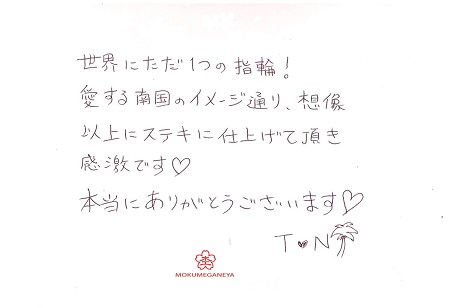 世界にただ1つの指輪!
愛する南国のイメージ通り、想像
以上にステキに仕上げて頂き
感激です♡
本当にありがとうございます♡
T♥N
MOKUMEGANEYA